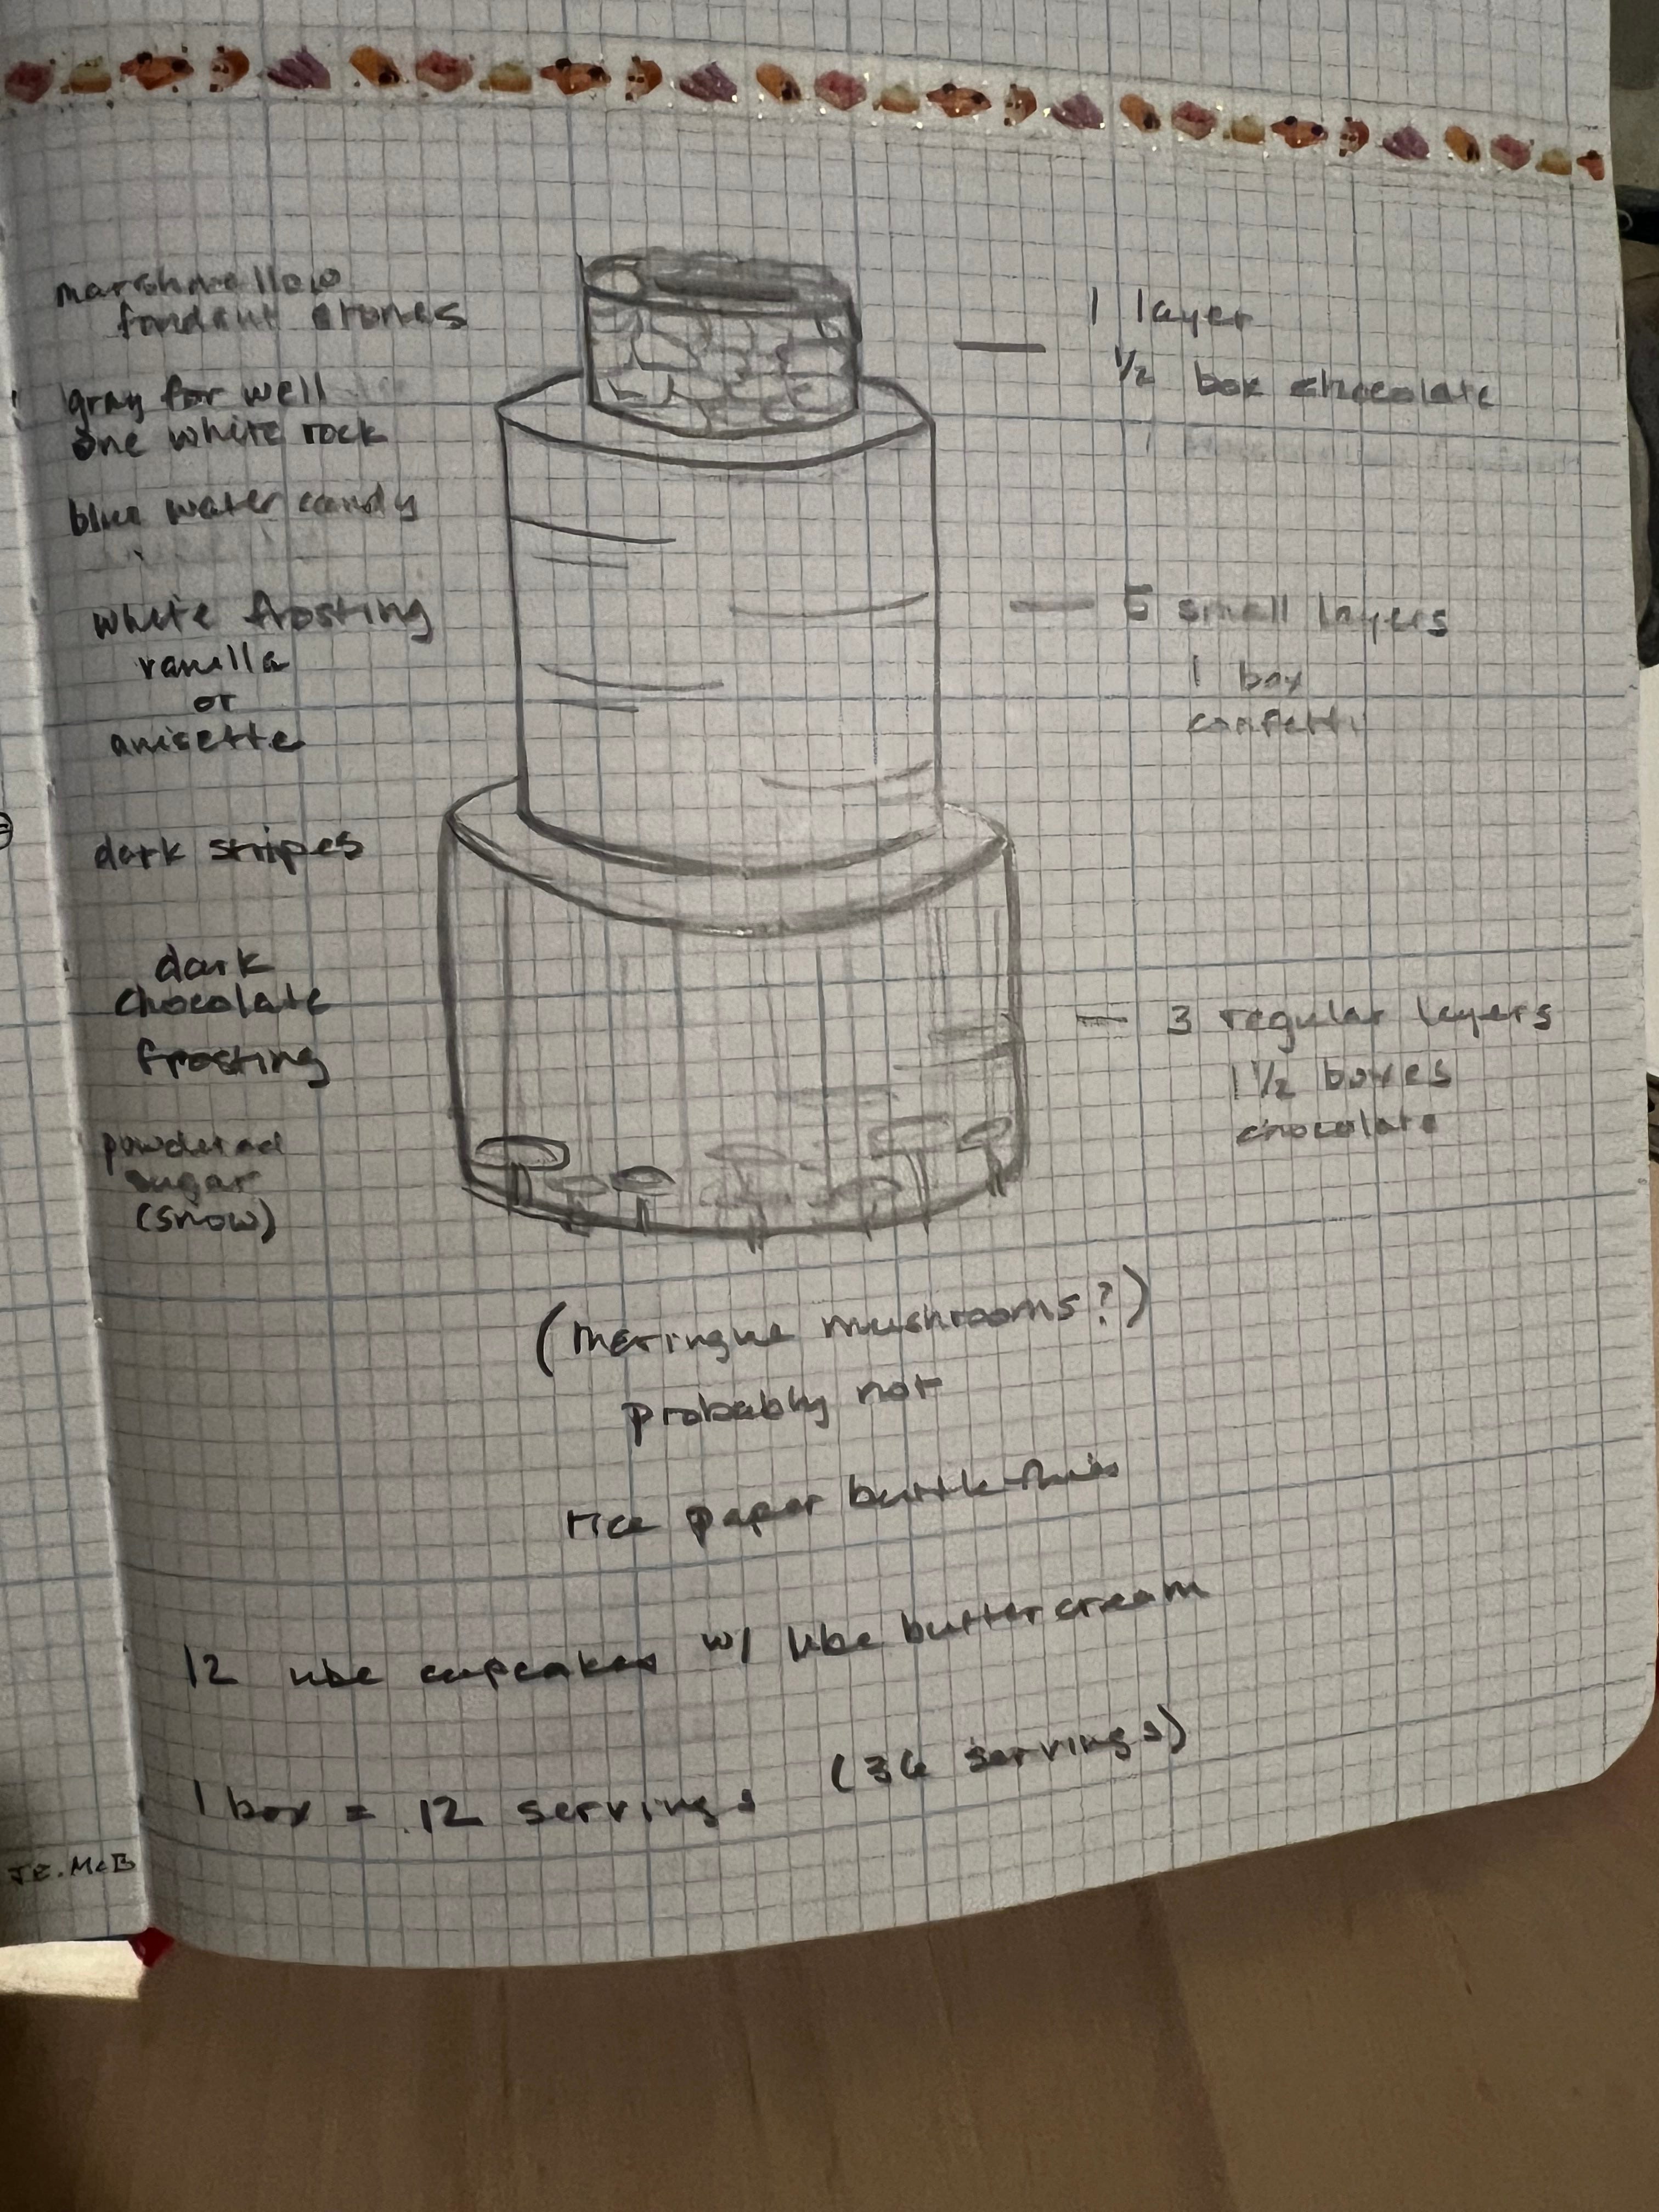 marshmallow
fondant stones
gray for well
one white rock
blue water candy
white frosting
vanilla
or
anisette
dark stripes
dark
chocolate
frosting
powdered
sugar
(snow)
1 layer
1/2 box chocolate
5 small layers
1 box
confetti
3 regular layers
1 1/2 boxes
chocolate
(meringue mushrooms?)
probably not
rice paper butterflies
12 ube cupcakes w/ ube buttercream
1 box = 12 servings (36 servings)
JE.McB